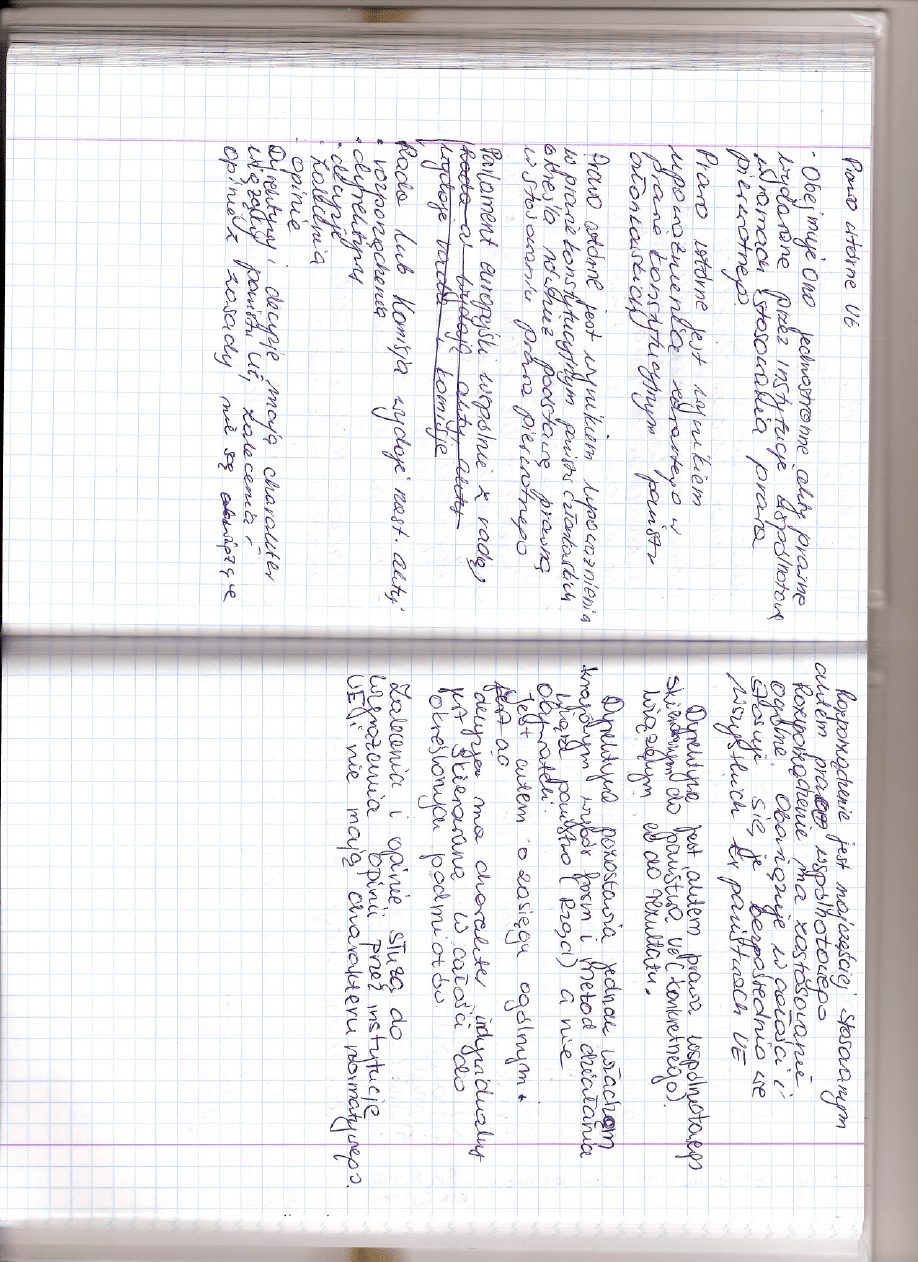 Prawo wtórne UE
- Obejmuje ono jednostronne akty prawne
wydawane przez instytucje wspólnotowe
w ramach stosowania prawa
pierwotnego
Prawo wtórne jest wynikiem
upoważnienia zawartego w
prawie konstytucyjnym państw
członkowskich
Prawo wtórne jest wynikiem upoważnienia
w prawie konstytucyjnym państw członkowskich
określa również podstawę prawną
w stosowaniu prawa pierwotnego
Parlament europejski wspólnie z radą,
Rada wydają akty akty
wydaje rada i komisje
Rada lub Komisja wydaje nast. akty:
• rozporządzenia
• dyrektywy
• decyzje
• zalecenia
• opinie
Dyrektywy i decyzje mają charakter
wiążący państw UE, zalecenia i
opinie z zasady nie są wiążące
Rozporządzenie jest najczęściej stosowanym
aktem prawa wspólnotowego
Rozporządzenie ma zastosowanie
ogólne. Obowiązuje w całości i
stosuje się je bezpośrednio we
wszystkich państwach UE
Dyrektywa jest aktem prawa wspólnotowego
skierowanym do państwa UE (konkretnego)
wiążącym co do rezultatu.
Dyrektywa pozostawia jednak władzom
krajowym wybór form i metod działania
wiąże państwo (rząd) a nie
obywateli.
Jest aktem o zasięgu ogólnym.
jest do
decyzja ma charakter indywidualny
jest skierowana w całości do
określonych podmiotów
Zalecenia i opinie służą do
wyrażania opinii przez instytucje
UE i nie mają charakteru normatywnego.